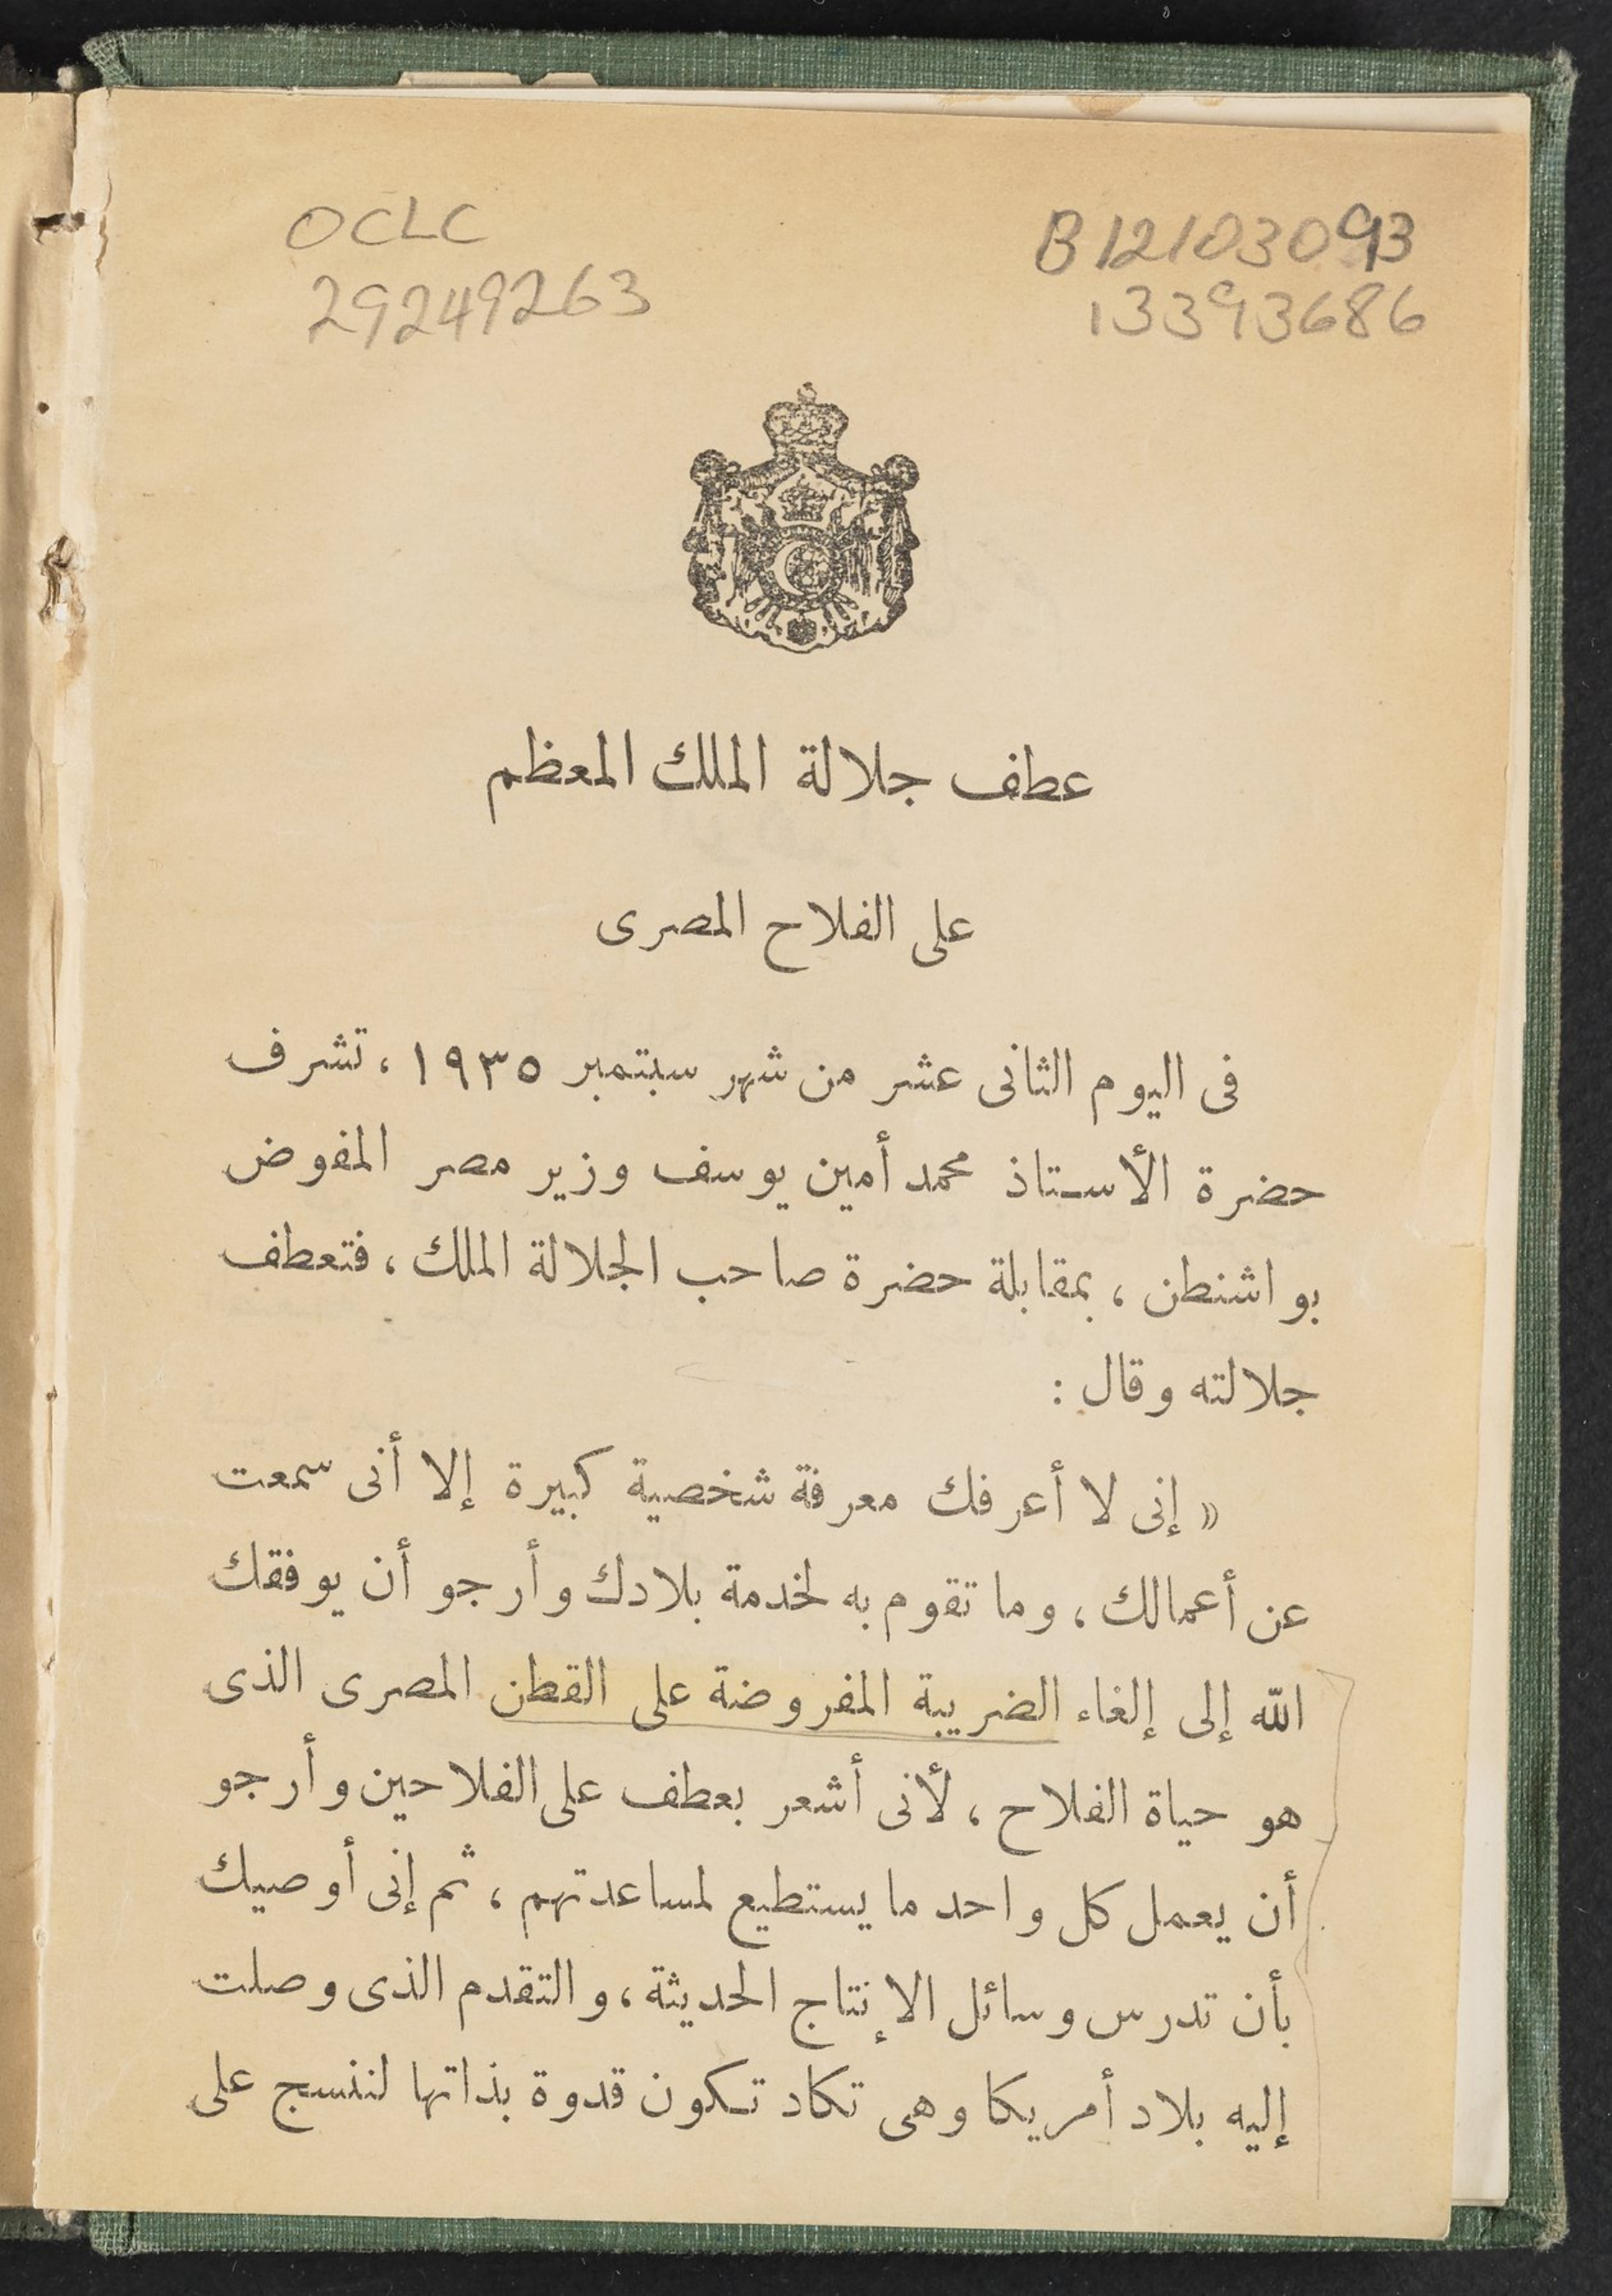 OCLC
29249263
B12103093
13393686
عطف جلالة الملك المعظم
على الفلاح المصرى
فى اليوم الثانى عشر من شهر سبتمبر ١٩٣٥ ، تشرف
حضرة الأستاذ محمد أمين يوسف وزير مصر المفوض
بواشنطن ، بمقابلة حضرة صاحب الجلالة الملك ، فتعطف
جلالته وقال :
« إنى لا أعرفك معرفة شخصية كبيرة إلا أنى سمعت
عن أعمالك ، وما تقوم به لخدمة بلادك وأرجو أن يوفقك
الله إلى إلغاء الضريبة المفروضة على القطن المصرى الذى
هو حياة الفلاح ، لأنى أشعر بعطف على الفلاحين وأرجو
أن يعمل كل واحد ما يستطيع لمساعدتهم ، ثم إنى أوصيك
بأن تدرس وسائل الإنتاج الحديثة ، والتقدم الذى وصلت
إليه بلاد أمريكا وهى تكاد تكون قدوة بذاتها لننسج على